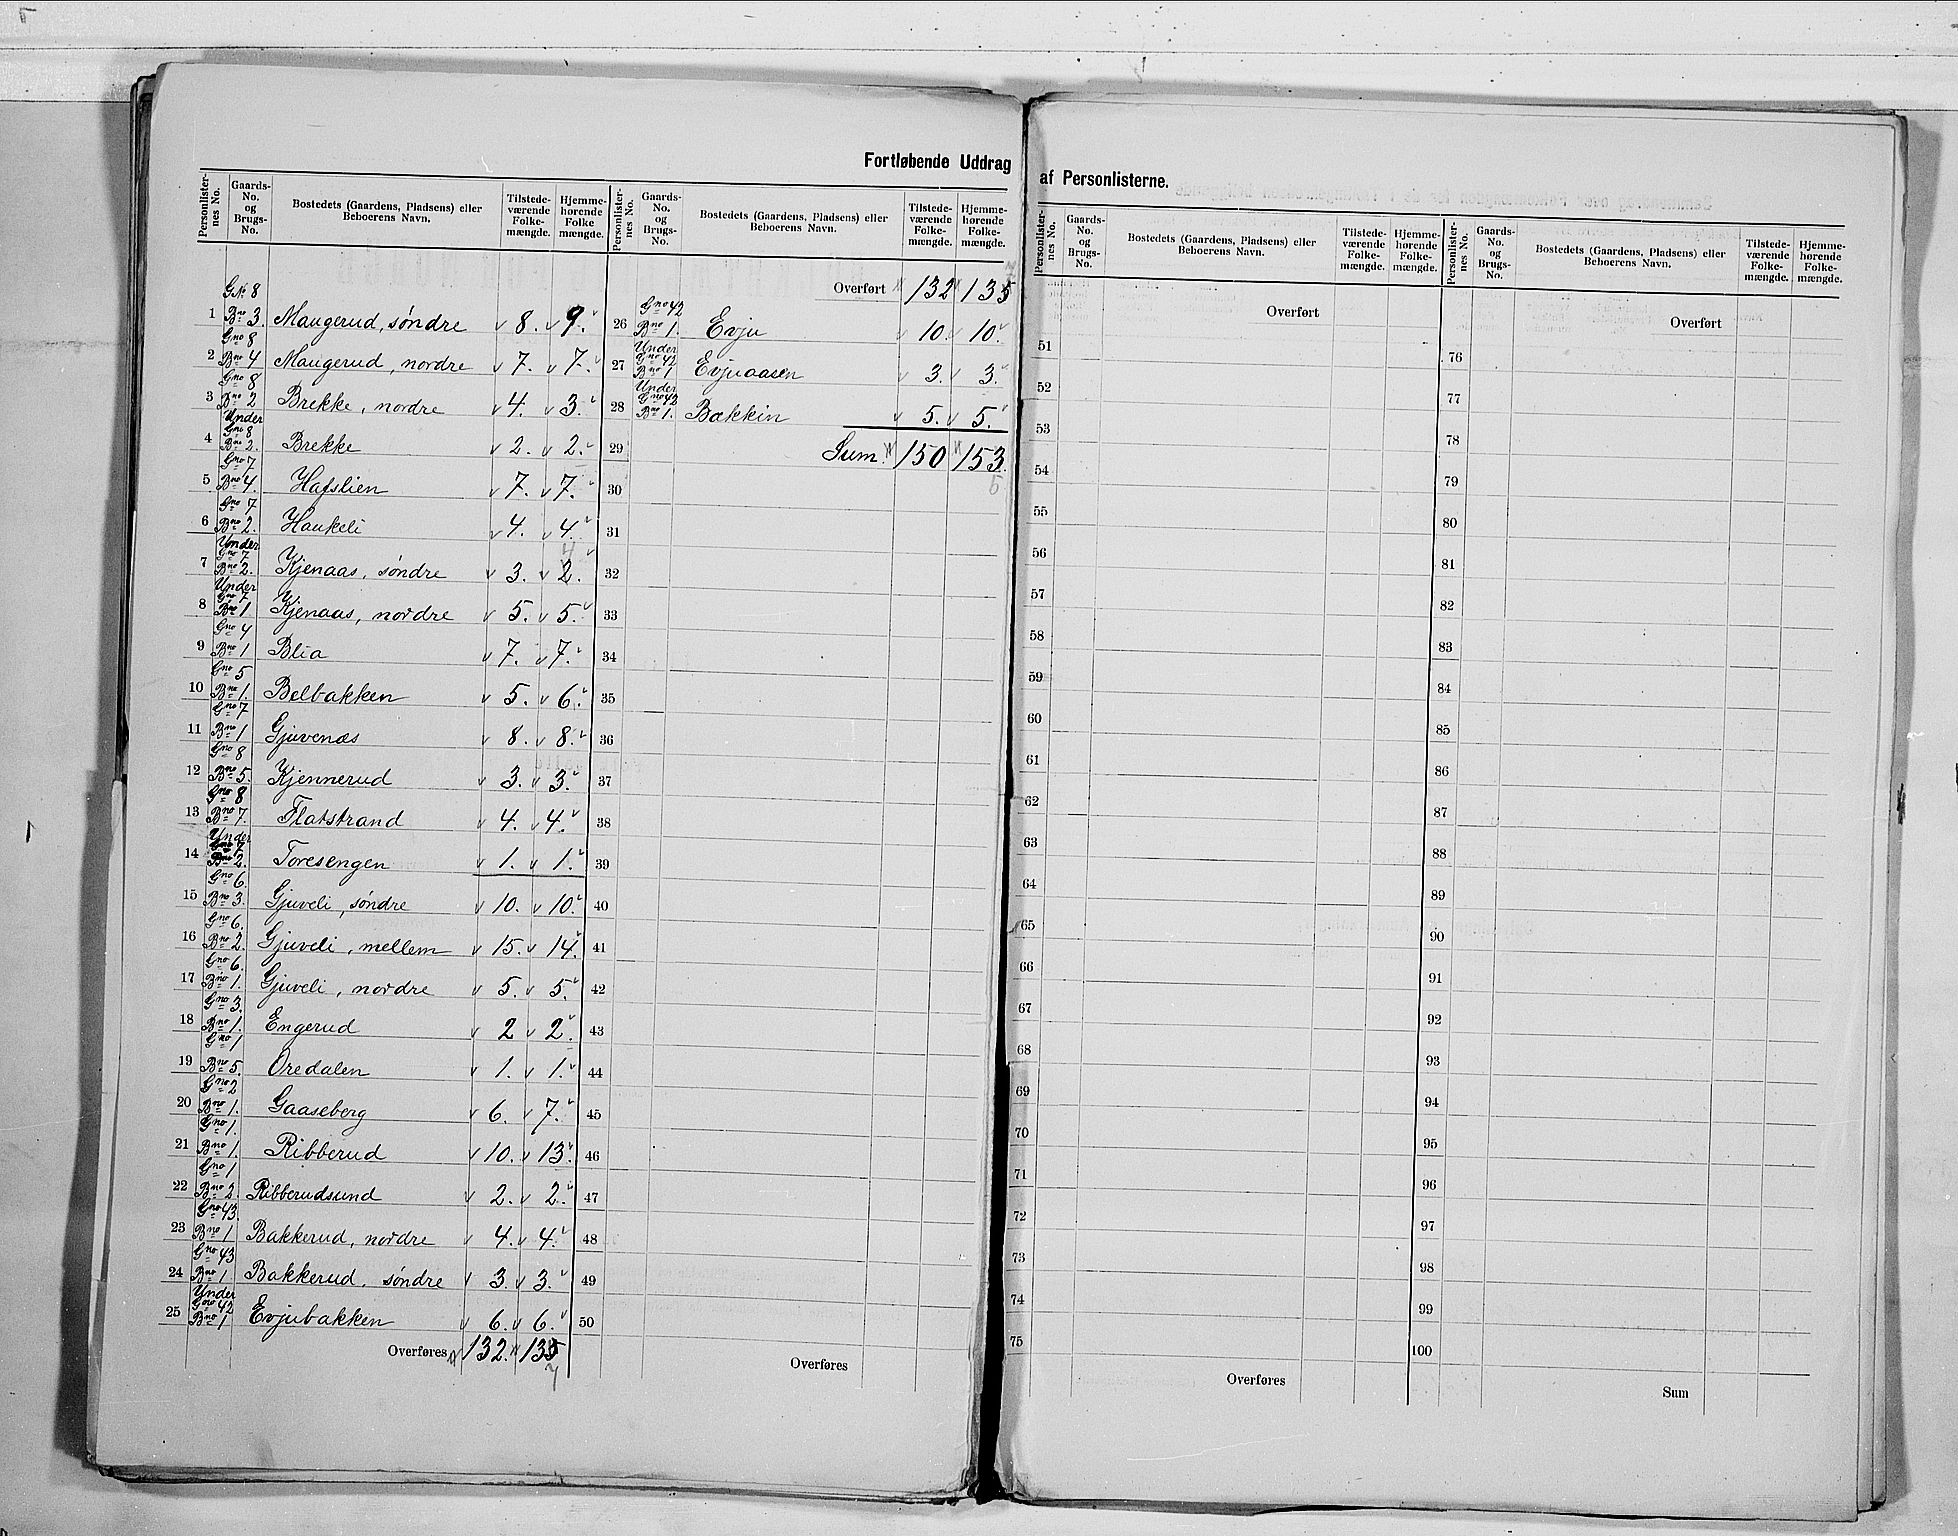 Fortløbende Uddrag af Personlisterne.
Personlister-nes No. | Gaards-No. og Brugs-No. | Bostedets (Gaardens, Pladsens) eller Beboerens Navn. | Tilstede-værende Folke-mængde. | Hjemme-hørende Folke mængde.
1 | Gno 8 Bno 3. | Maugerud, søndre | 8. | 9.
2 | Gno 8 Bno 4 | Maugerud, nordre | 7. | 7.
3 | Gno 8 Bno 2 | Brekke, nordre | 4. | 3.
4 | Under Gno 8 Bno 2. | Brekke | 2. | 2.
5 | Gno 7 Bno 4. | Hafslien | 7. | 7.
6 | Gno 7 Bno 2. | Haukeli | 4. | 4.
7 | Under Gno 7 Bno 2. | Kjenaas, søndre | 3. | 4 2.
8 | Under Gno 7 Bno 1. | Kjenaas, nordre | 5. | 5.
9 | Gno 4 Bno 1 | Blia | 7. | 7.
10 | Gno 5 Bno 1. | Belbakken | 5. | 6.
11 | Gno 7 Bno 1 | Gjuvenæs | 8. | 8.
12 | Gno 8 Bno 5. | Kjennerud | 3. | 3.
13 | Gno 8 Bno 7. | Flatstrand | 4. | 4.
14 | Under Gno 7 Bno 2. | Toresengen | 1. | 1.
15 | Gno 6. Bno 3. | Gjuveli, søndre | 10. | 10.
16 | Gno 6. Bno 2. | Gjuveli, mellem | 15. | 14.
17 | Gno 6. Bno 1. | Gjuveli, nordre | 5. | 5.
18 | Gno 3. Bno 1. | Engerud | 2 | 2.
19 | Gno 1 Bno 5. | Oredalen | 1. | 1.
20 | Gno 2 Bno 1. | Gaaseberg | 6. | 7.
21 | Gno 1. Bno 1. | Ribberud | 10. | 13.
22 | Gno 1 Bno 2. | Ribberudsund | 2. | 2.
23 | Gno 43. Bno 1 | Bakkerud, nordre | 4. | 4.
24 | Gno 43 Bno 1 | Bakkerud, søndre | 3. | 3.
25 | Under Gno 42 Bno 1 | Evjubakken | 6. | 6.
Overføres | 132. | 135
7
Personlister-nes No. | Gaards-No. og Brugs-No. | Bostedets (Gaardens, Pladsens) eller Beboerens Navn. | Tilstede-værende Folke-mængde. | Hjemme-hørende Folke-mængde.
Overført | 132 | 135
26 | Gno 42 Bno 1. | Evju | 10. | 10.
27 | Under Gno 42 Bno 1 | Evjuaasen | 3. | 3.
28 | Under Gno 42 Bno 1. | Bækkin | 5. | 5.
29 | Sum | 150 | 153.
5
30
31
32
33
34
35
36
37
38
39
40
41
42
43
44
45
46
47
48
49
50
Overføres
Personlister-nes No. | Gaards-No. og Brugs-No. | Bostedets (Gaardens, Pladsens) eller Beboerens Navn. | Tilstede-værende Folke-mængde. | Hjemme-hørende Folke-mængde.
Overført
51
52
53
54
55
56
57
58
59
60
61
62
63
64
65
66
67
68
69
70
71
72
73
74
75
Overføres
Personlister-nes No. | Gaards-No. og Brugs-No. | Bostedets (Gaardens, Pladsens) eller Beboerens Navn. | Tilstede-værende Folke-mængde. | Hjemme-hørende Folke-mængde.
Overført
76
77
78
79
80
81
82
83
84
85
86
87
88
89
90
91
92
93
94
95
96
97
98
99
100
Sum